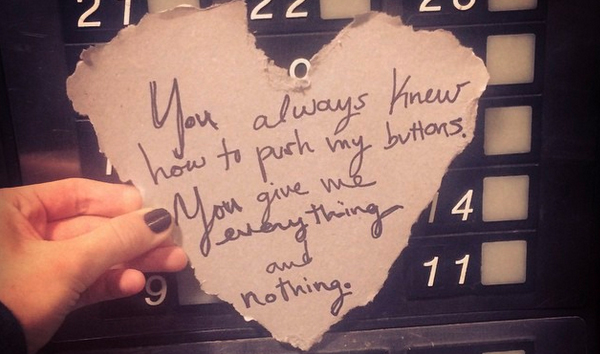 21 22 20
You always knew
how to push my buttons.
You give me
everything
and
nothing.
14
11
9